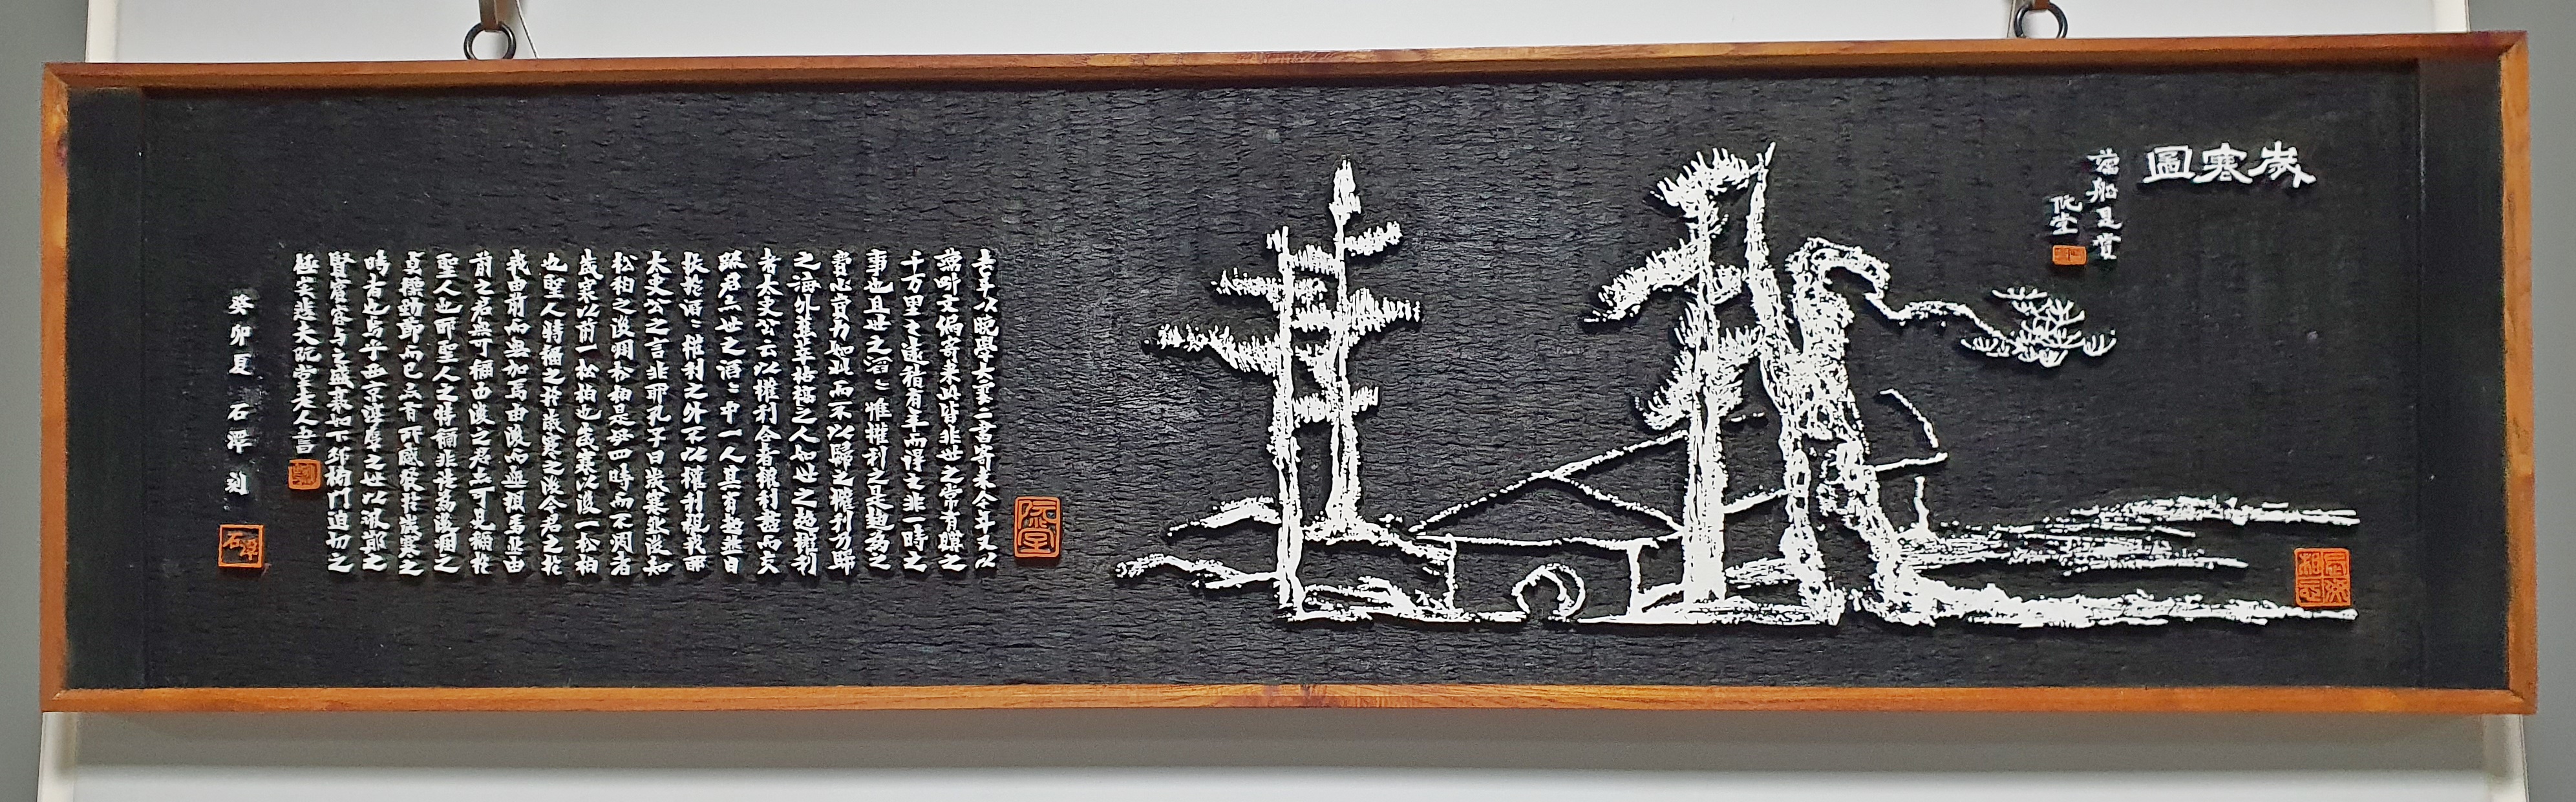 歲寒圖
藕船是賞
阮堂
去年以晚學大雲二書寄来今年又以
藕畊文偏寄来此皆非世之常有購之
千万里之遠積有年而得之非一時之
事也且世之滔〻惟權利之是趨為之
費心費力如此而不以歸之權利乃歸
之海外蕉萃枯槁之人如世之趨權利
者太史公云以權利合者權利盡而交
疎君亦世之滔〻中一人其有超然自
拔於滔〻權利之外不以權利視我耶
太史公之言非耶孔子曰歲寒然後知
松柏之後凋松柏是毋四時而不凋者
歲寒以前一松柏也歲寒以後一松柏
也聖人特稱之於歲寒之後今君之於
我由前而無加焉由後而無損焉然由
前之君無可稱由後之君亦可見稱於
聖人也耶聖人之特稱非徒為後凋之
貞操勁節而已亦有所感發於歲寒之
時者也烏乎西京淳厚之世以汲鄭之
賢賓客与之盛衰如下邳榜門迫切之
極矣悲夫阮堂老人書
癸卯夏 石潭 刻
阮堂
石潭